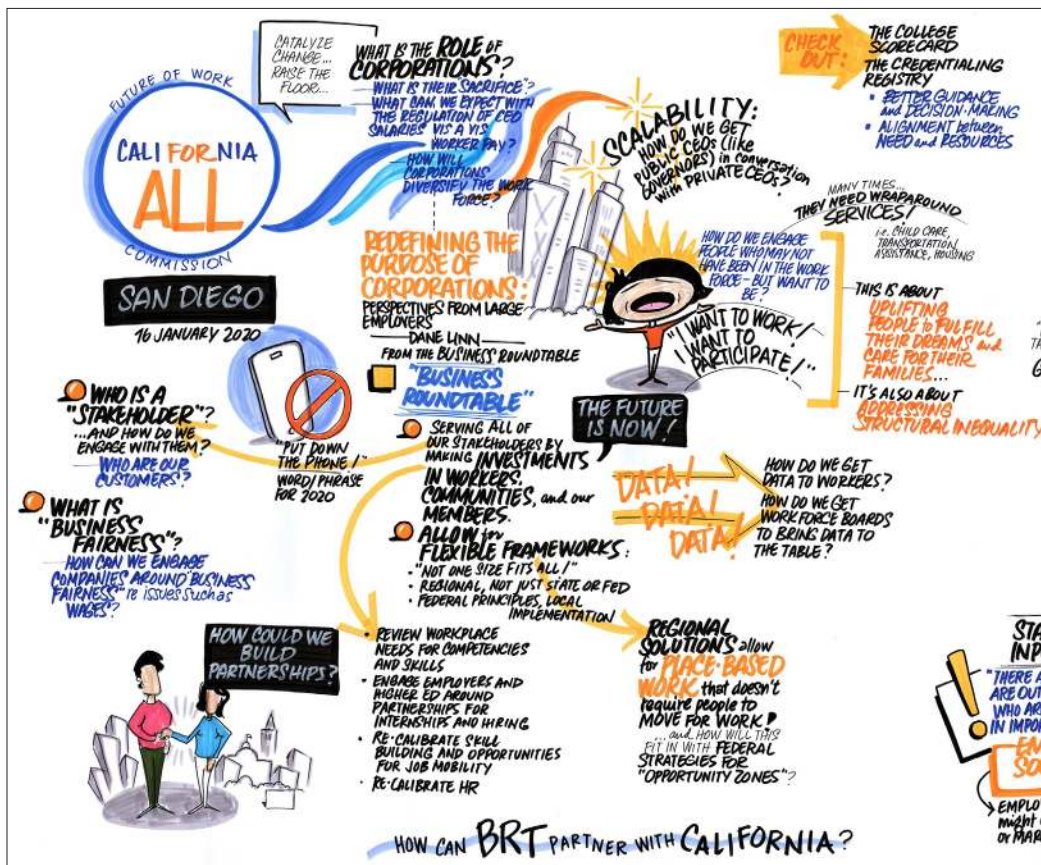 FUTURE OF WORK
CALIFORNIA
ALL
COMMISSION
SAN DIEGO
16 JANUARY 2020
CATALYZE
CHANGE...
RAISE THE
FLOOR...
WHAT IS THE ROLE OF
CORPORATIONS?
WHAT IS THEIR "SACRIFICE"?
WHAT CAN WE EXPECT WITH
THE REGULATION OF CEO
SALARIES VIS A VIS
WORKER PAY?
HOW WILL
CORPORATIONS
DIVERSIFY THE WORK
FORCE?
REDEFINING THE
PURPOSE OF
CORPORATIONS:
PERSPECTIVES FROM LARGE
EMPLOYERS
DANE LINN
FROM THE BUSINESS ROUNDTABLE
SCALABILITY:
HOW DO WE GET
PUBLIC CEOs (like
GOVERNORS) in conversation
with PRIVATE CEOs?
CHECK
OUT:
THE COLLEGE
SCORECARD
THE CREDENTIALING
REGISTRY
• BETTER GUIDANCE
and DECISION-MAKING
• ALIGNMENT between
NEED and RESOURCES
MANY TIMES...
THEY NEED WRAPAROUND
SERVICES!
i.e. CHILD CARE,
TRANSPORTATION
ASSISTANCE, HOUSING
HOW DO WE ENGAGE
PEOPLE WHO MAY NOT
HAVE BEEN IN THE WORK
FORCE - BUT WANT TO
BE?
"I WANT TO WORK!
I WANT TO
PARTICIPATE!"
THIS IS ABOUT
UPLIFTING
PEOPLE to FULFILL
THEIR DREAMS and
CARE FOR THEIR
FAMILIES...
IT'S ALSO ABOUT
ADDRESSING
STRUCTURAL INEQUALITY
WHO IS A
"STAKEHOLDER"?
...AND HOW DO WE
ENGAGE WITH THEM?
WHO ARE OUR
CUSTOMERS?
"PUT DOWN
THE PHONE!"
WORD/PHRASE
FOR 2020
WHAT IS
"BUSINESS
FAIRNESS"?
HOW CAN WE ENGAGE
COMPANIES AROUND "BUSINESS
FAIRNESS" re ISSUES such as
WAGES?
"BUSINESS
ROUNDTABLE"
SERVING ALL OF
OUR STAKEHOLDERS BY
MAKING INVESTMENTS
IN WORKERS,
COMMUNITIES, and our
MEMBERS.
ALLOW for
FLEXIBLE FRAMEWORKS:
• "NOT ONE SIZE FITS ALL!"
• REGIONAL, NOT JUST STATE OR FED
• FEDERAL PRINCIPLES, LOCAL
IMPLEMENTATION
THE FUTURE
IS NOW!
DATA!
DATA!
DATA!
HOW DO WE GET
DATA TO WORKERS?
HOW DO WE GET
WORKFORCE BOARDS
TO BRING DATA TO
THE TABLE?
HOW COULD WE
BUILD
PARTNERSHIPS?
• REVIEW WORKPLACE
NEEDS FOR COMPETENCIES
AND SKILLS
• ENGAGE EMPLOYERS AND
HIGHER ED AROUND
PARTNERSHIPS FOR
INTERNSHIPS AND HIRING
• RE-CALIBRATE SKILL
BUILDING AND OPPORTUNITIES
FOR JOB MOBILITY
• RE-CALIBRATE HR
REGIONAL
SOLUTIONS allow
for PLACE-BASED
WORK that doesn't
require people to
MOVE FOR WORK!
...and HOW WILL THIS
FIT IN WITH FEDERAL
STRATEGIES FOR
"OPPORTUNITY ZONES"?
HOW CAN BRT PARTNER WITH CALIFORNIA?
"THERE A
ARE OUT
WHO ARE
IN IMPOR
EMPLOY
might
or MAR